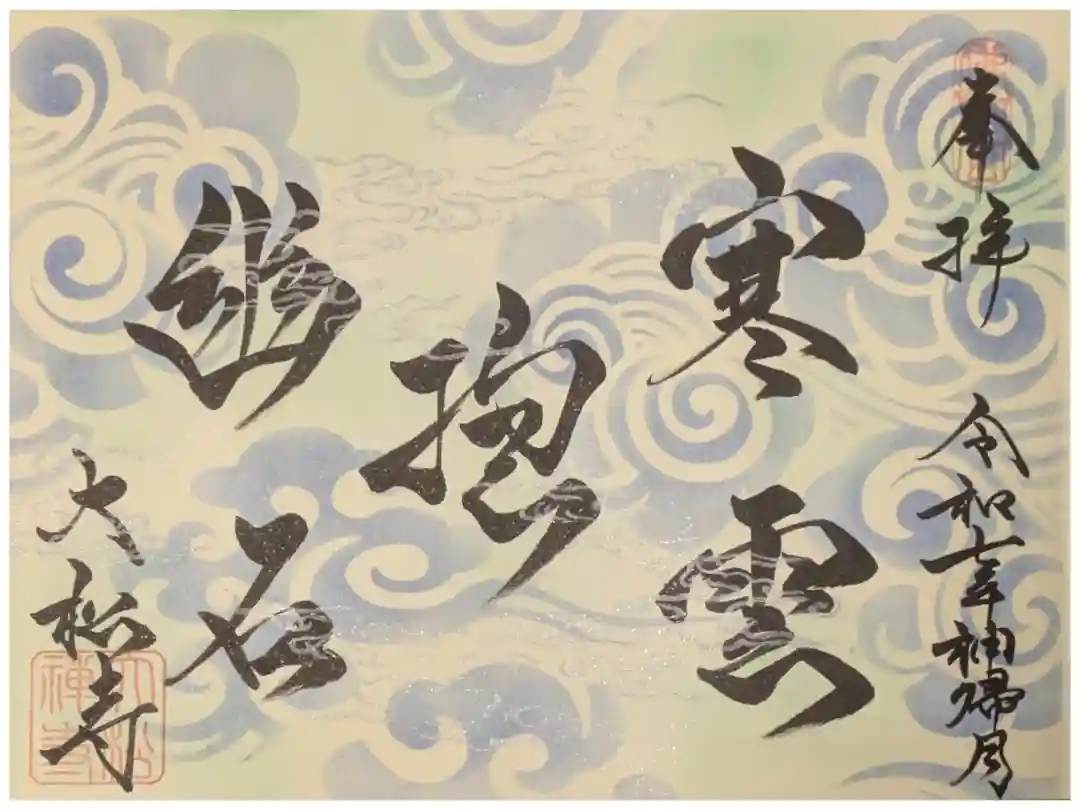 奉拝
令和七年神帰月
寒雲
抱
幽石
大松寺
大松
禪寺